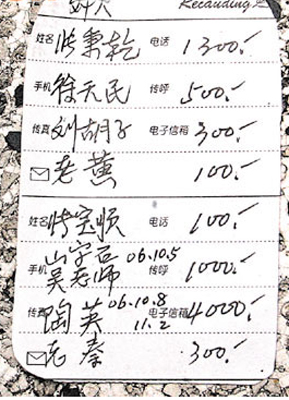 Recanding
姓名 张秉乾 电话 1300.-
手机 徐天民 传呼 500.-
传真 刘胡子 电子信箱 300.-
老黄 100.-
姓名 张宝顺 电话 100.-
山字石 06.10.5
手机 吴老师 传呼 1000.-
传真 陶英 06.10.8 电子信箱 4000.-
11.2
老秦 300.-